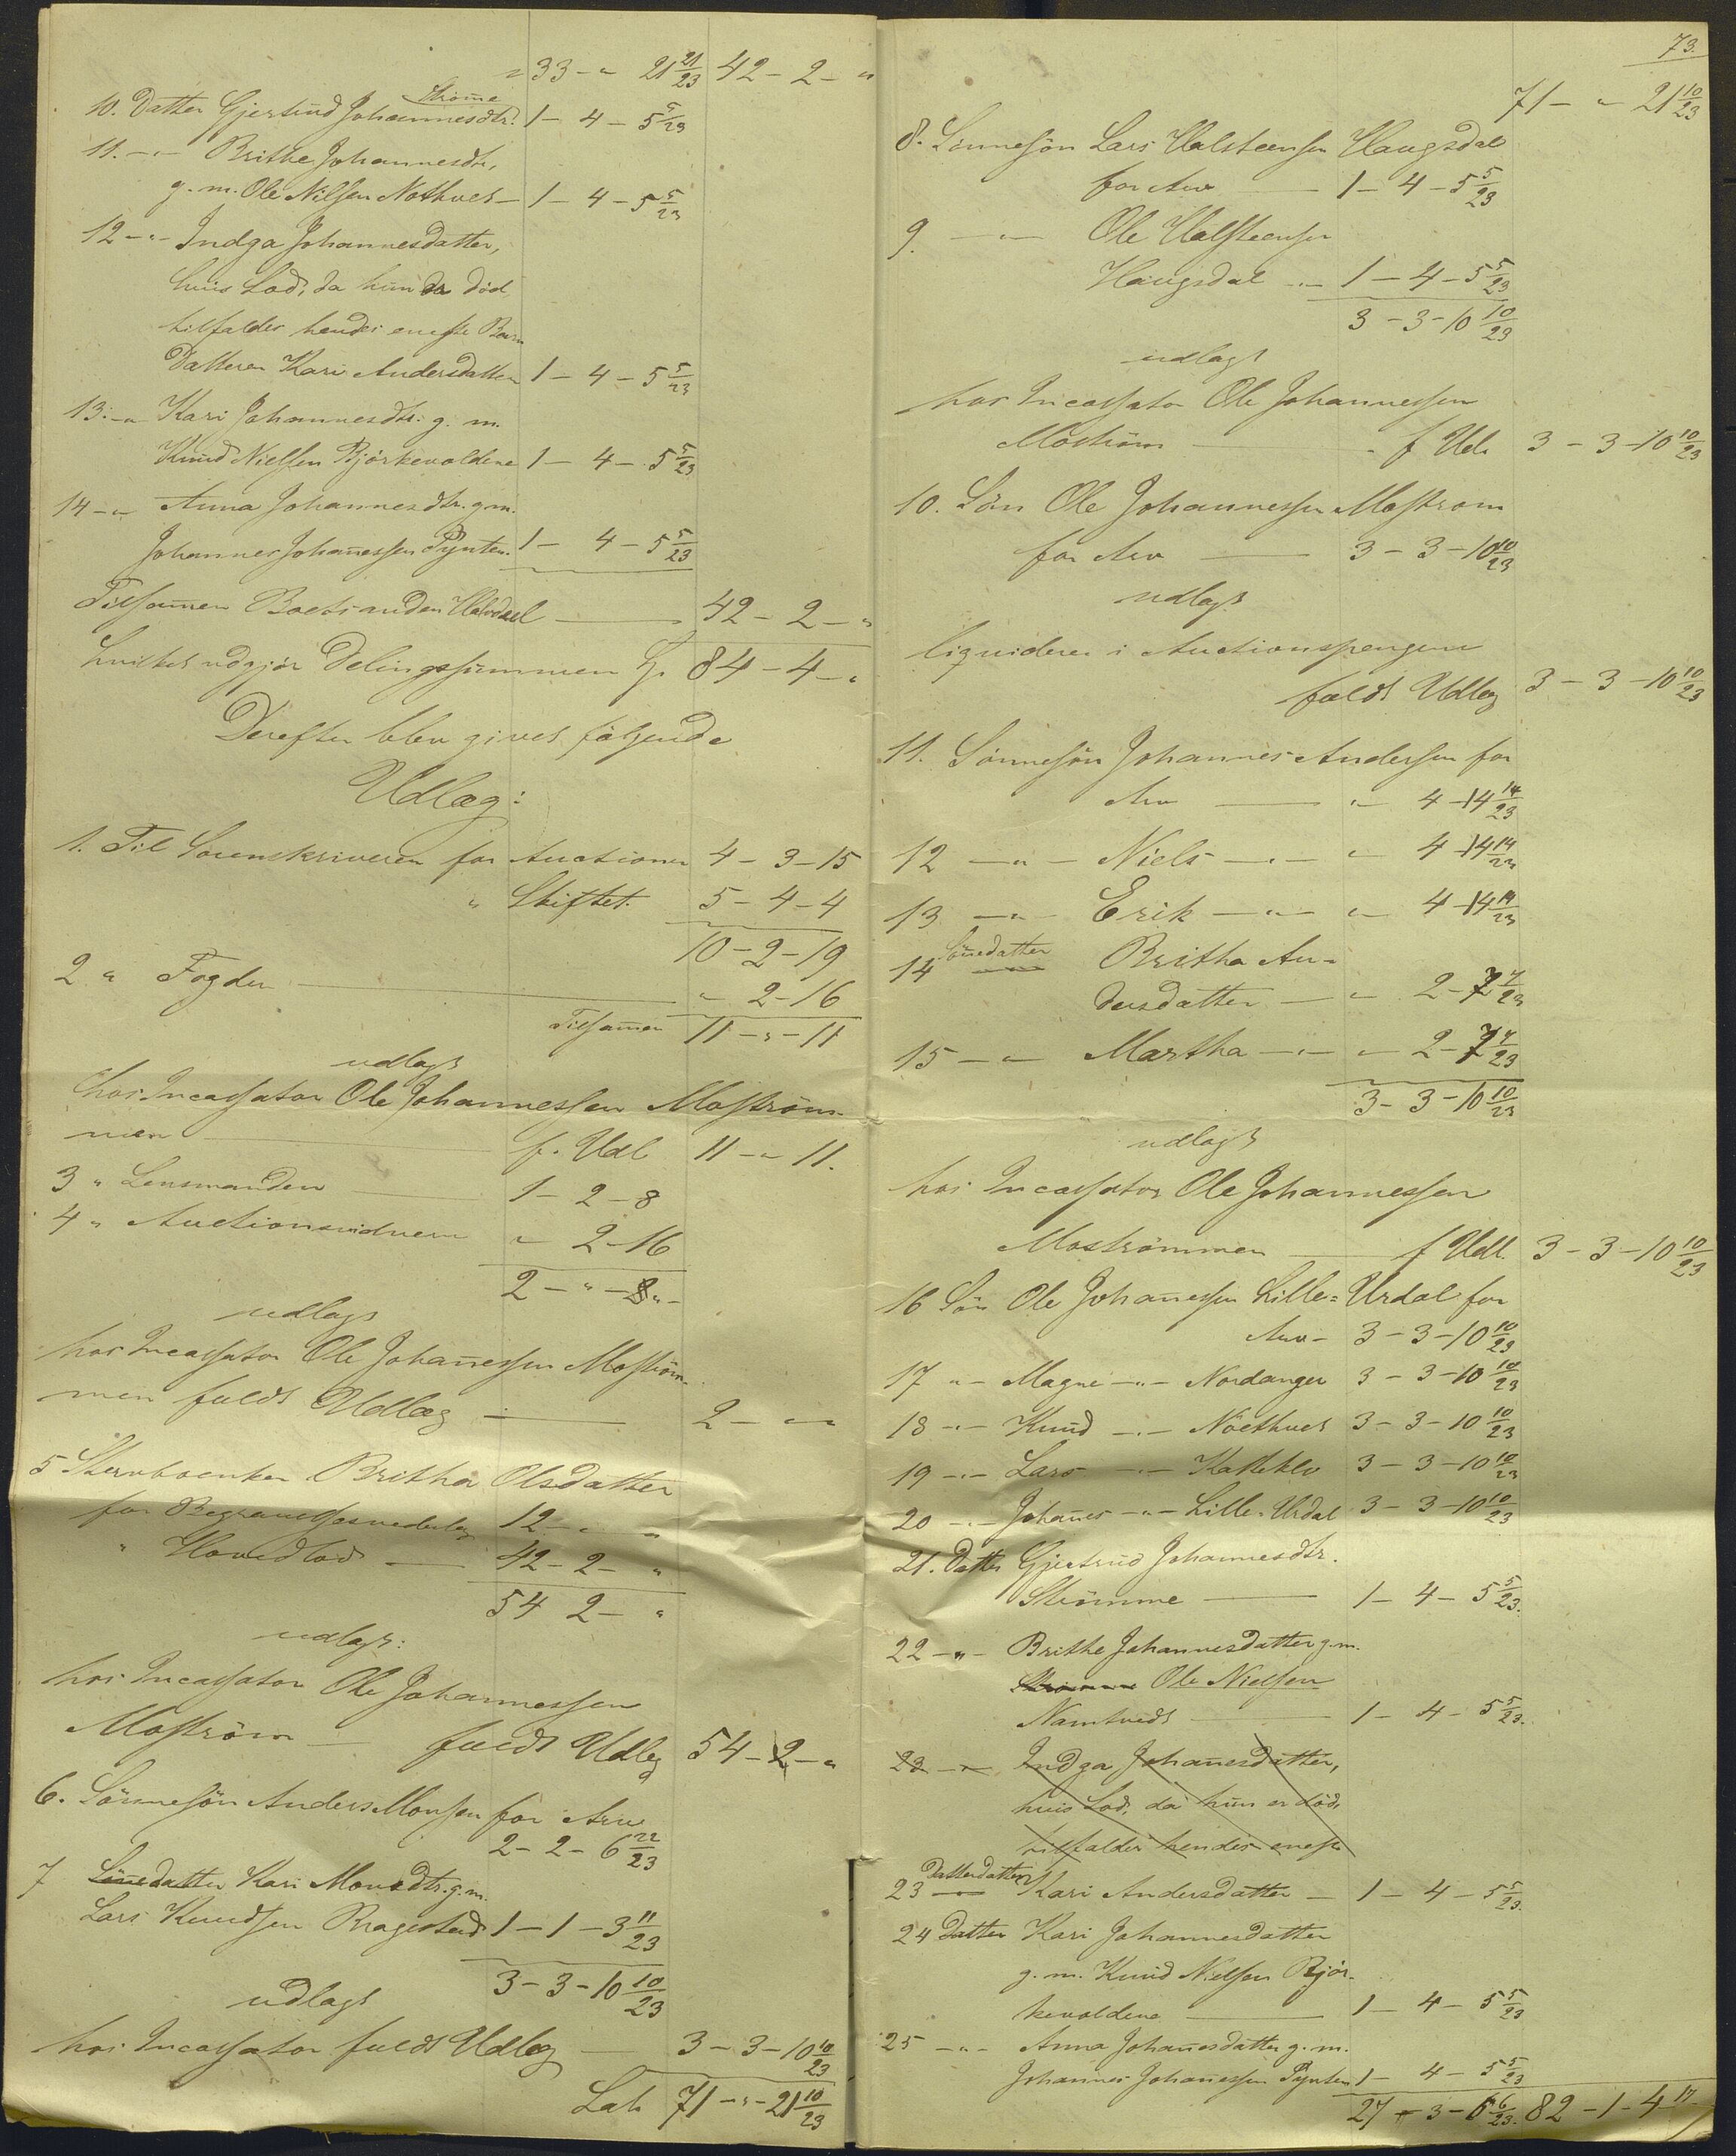 " 33 - " 21 21/23 42 - 2 - "
Strømme
10. Datter Gjertrud Johannesdtr. 1 - 4 - 5 5/23
11. - " - Brithe Johannesdtr,
g. m. Ole Nilsen Nøthvet - 1 - 4 - 5 5/23
12 - " - Indga Johannesdatter,
hvis Lod, da hun er død
tilfalder hendes eneste Barn
Datteren Kari Andersdatter 1 - 4 - 5 5/23
13. - " Kari Johannesdtr. g. m.
Knud Nielsen Bjørkevoldene 1 - 4 - 5 5/23
14 - " Anna Johannesdtr. g m.
Johannes Johañessen Pynten. 1 - 4 - 5 5/23
Tilsam̄en Boets anden Halvdeel 42 - 2 - "
hvilket udgjør Delingssummen 84 - 4 - "
Derefter blev givet følgende
Udlæg:
1. Til Sorenskriveren for Auctionen 4 - 3 - 15
" Skiftet. 5 - 4 - 4
10 - 2 - 19
2 " Fogden " 2 - 16
Tilsam̄en 11 - " - 11
udlagt
hos Incassator Ole Johannessen Mostrøm-
men f. Udl 11 - " 11.
3 " Lensmanden 1 - 2 - 8
4 " Auctionsvidnerne " 2 - 16
2 - " - " -
udlagt
hos Incassator Ole Johañessen Mostrøm-
men fuldt Udlæg 2 - " "
5 Stervboenken Britha Olsdatter
for Begravelsesvederlag 12 - " "
" Hovedlod 42 - 2 - "
54 2 - "
udlagt:
hos Incassator Ole Johannessen
Mostrøm fuldt Udlæg 54 - 2 - "
6. Sønnesøn Anders Monsen for Arv
2 - 2 - 6 22/23
7 Søñedatter Kari Monsdtr. g. m.
Lars Knudsen Bragestad 1 - 1 - 3 11/23
3 - 3 - 10 10/23
udlagt
hos Incassator fuldt Udlæg 3 - 3 - 10 10/23
Lat 71 - " - 21 10/23
73.
71 - " 21 10/23
8. Sønnesøn Lars Halsteensen Haugsdal
for Arv 1 - 4 - 5 5/23
9. - " - Ole Halsteensen
Haugsdal " 1 - 4 - 5 5/23
3 - 3 - 10 10/23
udlagt
hos Incassator Ole Johannessen
Mostrøm f Udl. 3 - 3 - 10 10/23
10. Søn Ole Johannessen Mostrøm
for Arv 3 - 3 - 10 10/23
udlagt
liquideres i Auctionspengene
fuldt Udlæg 3 - 3 - 10 10/23
11. Sønnesøn Johannes Andersen for
Arv " 4 - 14 14/23
12 - " - Niels - " - " 4 - 14 14/23
13 - " - Erik - " - " 4 - 14 14/23
14 Søñedatter Britha An-
dersdatter - " 2 - 7 7/23
15 - " Martha - " - " 2 - 7 7/23
3 - 3 - 10 10/23
udlagt
hos Incassator Ole Johannessen
Mostrømmen f Udl. 3 - 3 - 10 10/23
16 Søn Ole Johañessen Lille-Urdal for
Arv - 3 - 3 - 10 10/23
17 " - Magne - " - Nordanger 3 - 3 - 10 10/23
18 - " - Knud - " - Nöethvet 3 - 3 - 10 10/23
19 - " - Lars - " - Kattehlv 3 - 3 - 10 10/23
20 - " - Johañes - " - Lille-Urdal 3 - 3 - 10 10/23
21. Datter Gjertrud Johannesdtr.
Strømme 1 - 4 - 5 5/23.
22 - " - Brithe Johannesdatter g. m.
Strømme Ole Nielsen
Namtvedt 1 - 4 - 5 5/23.
23 - " - Indga Johañesdatter,
hvis Lod, da hun er død,
tilfalder hendes eneste
23 Datterdatter Kari Andersdatter - 1 - 4 - 5 5/23.
24 Datter Kari Johannesdatter
g. m. Knud Nielsen Bjør-
kevoldene 1 - 4 - 5 5/23
25 - " - Anna Johañesdatter g. m.
Johannes Johañessen Pynten 1 - 4 - 5 5/23
27 - 3 - 6 6/23. 82 - 1 - 4 17